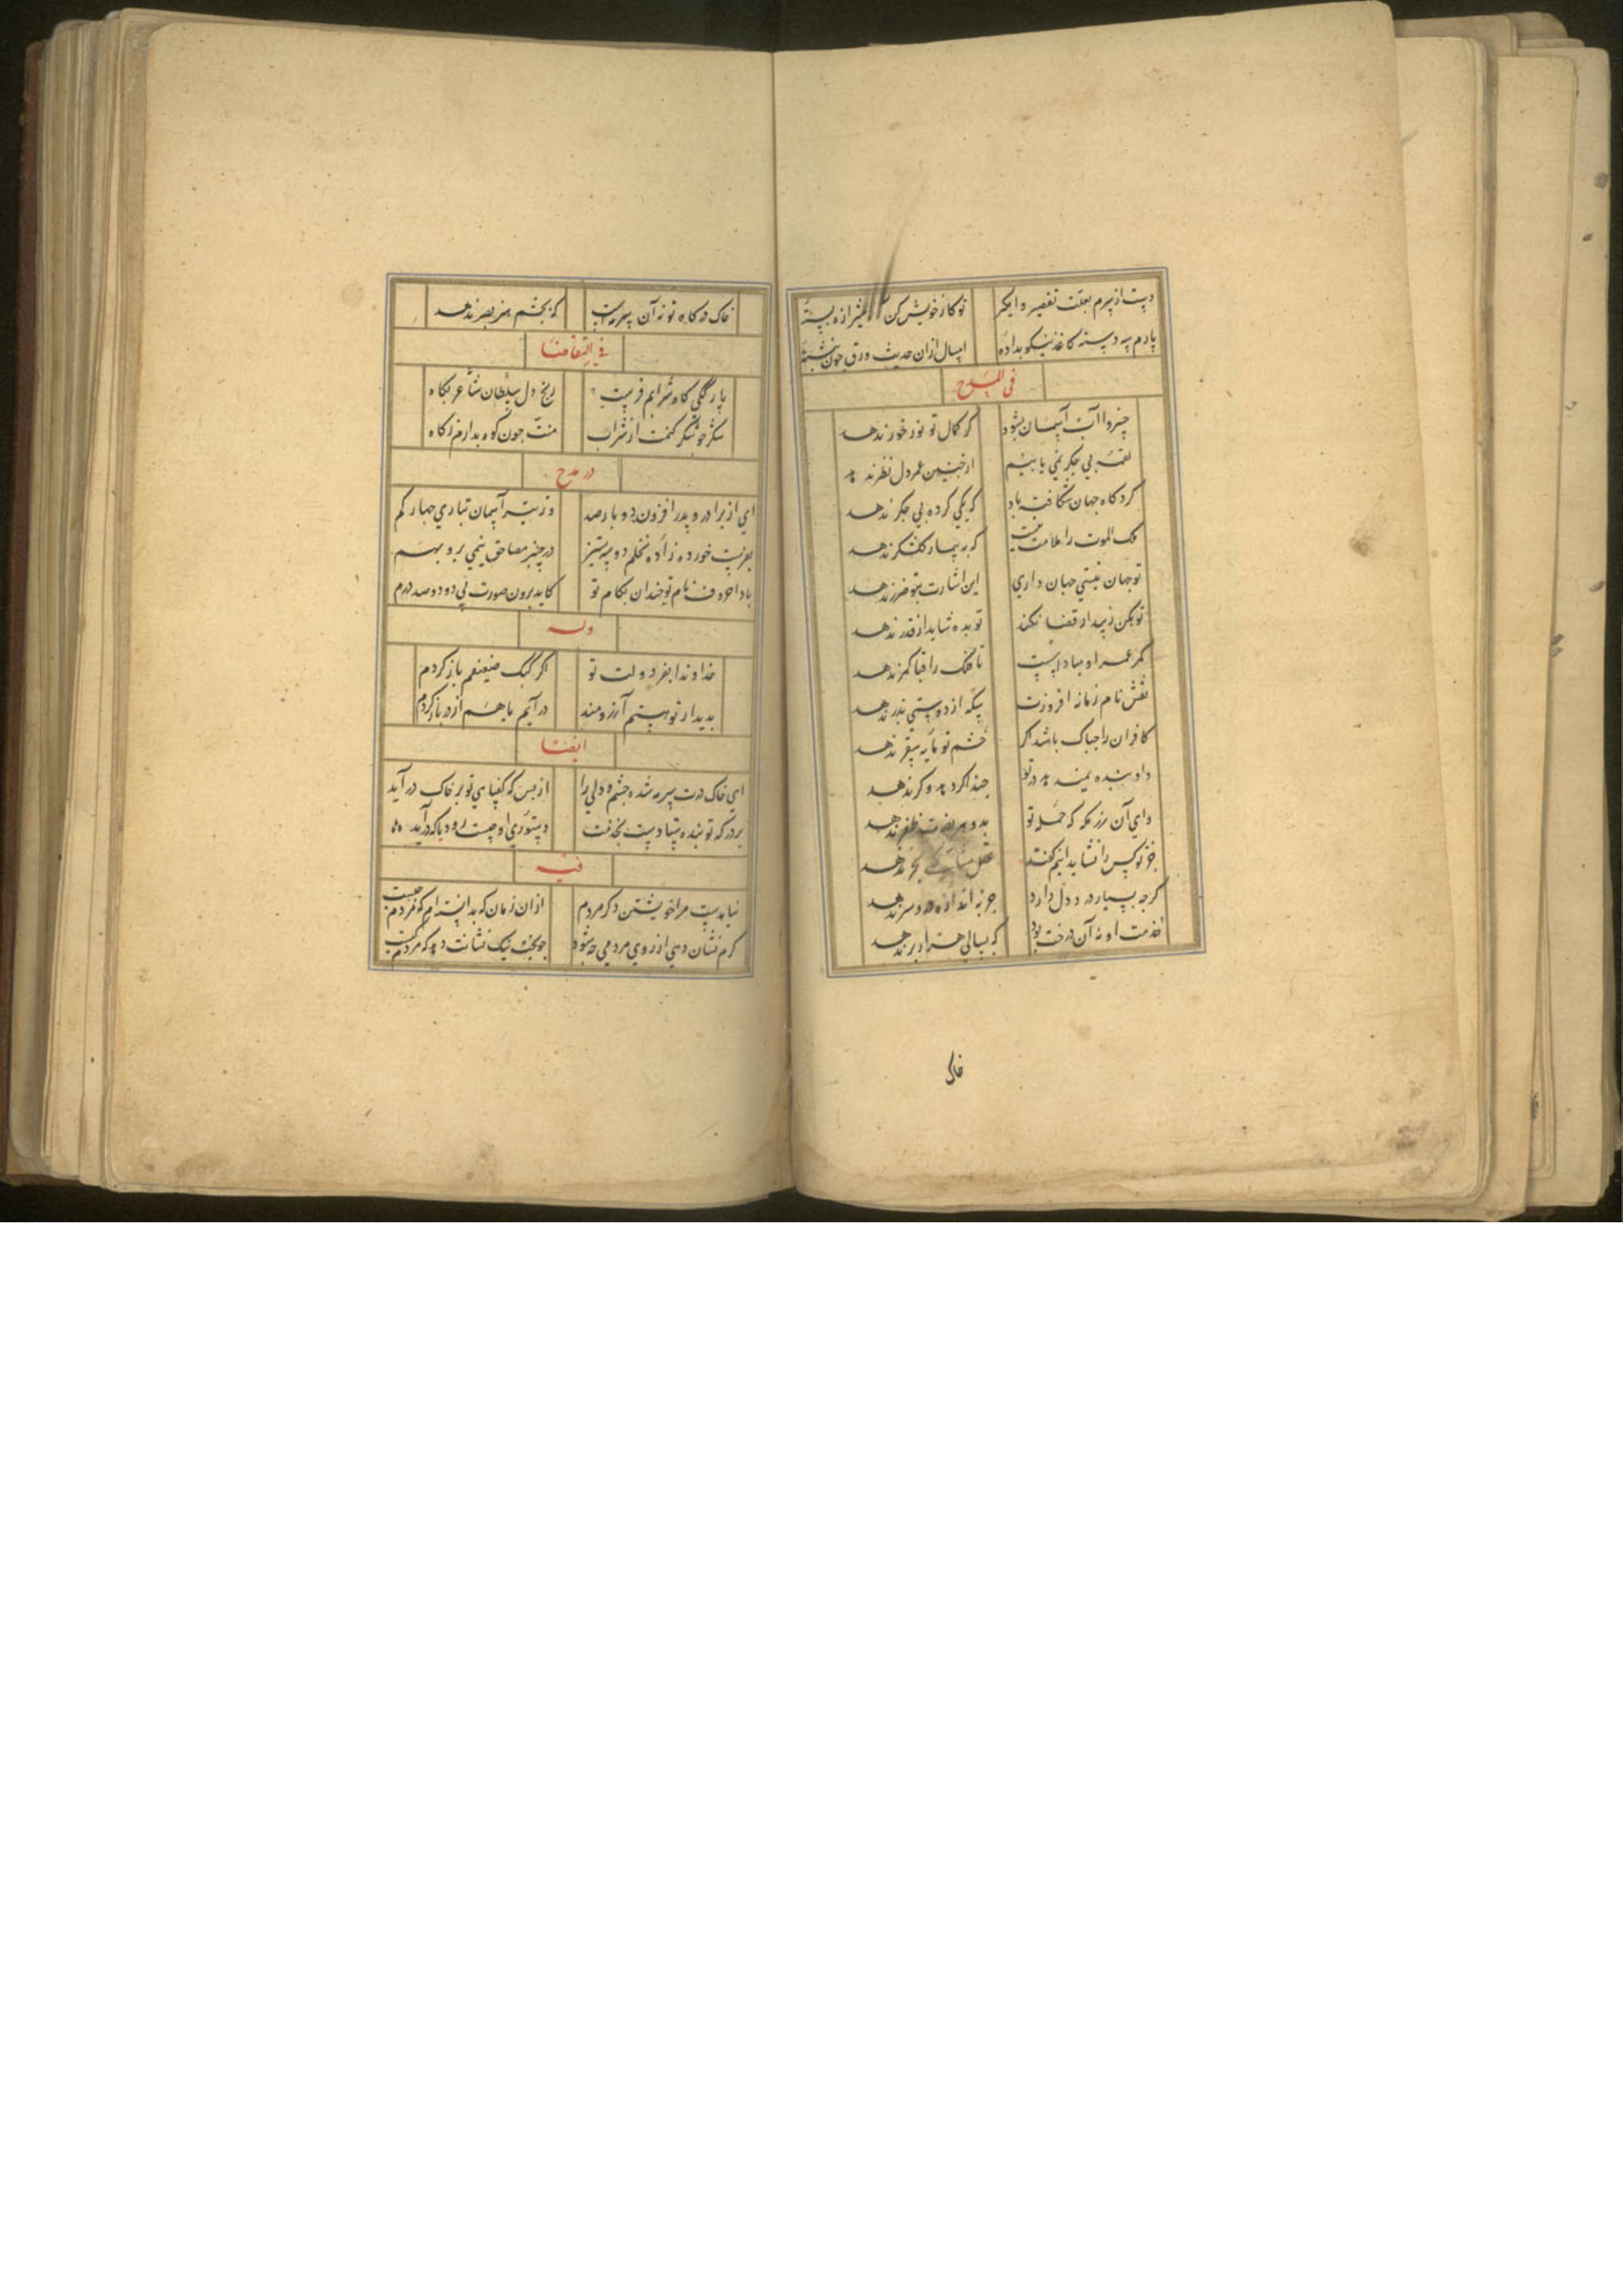 دست از سرم بعلت تقصیر وامکیر تو کار خویش کن
پارم سه دسته کاغذ نیکو بداده امسال ازان حدیث ورق چون نبشته
فی المدح
خسروا آب آسمان بشود کر کمال تو نور خور ندهد
لقمه بی جکر نمی یابیم
کرد کاه جهان شکافته باد که یکی کرده بی جکر ندهد
ملک الموت را ملامت نیست که به بیمار کلشکر ندهد
تو جهان نیستی جهان داری این اشارت بتو ضرر ندهد
تو بکن زیبد ار قضا نکند تو بده شاید ار قدر ندهد
کمر عمر او مباد اسست تا فلک را قبا کمر ندهد
نقش نام زمانه افروزت سکه از دوستی بدر ندهد
کافران را چه باک باشد اکر خشم تو مایه سقر ندهد
داد بنده نمی دهد در تو چند اکر دهد وکر ندهد
وای آن رزمکه که حمله تو بدو سر نفرت ظفر ندهد
جز تو کس را نشاید اینم کفت
کرچه بسیار درد دل دارد جز به اندازه درد سر ندهد
خدمت او نه آن درخت بود که بسالی هزار بر ندهد
خاک
خاک درکاه تو نه آن سرمه است که بچشم هنر بصر ندهد
فی التقاضا
پار کلی کاه شرابم فرست رنج دل سلطان شاعر بکاه
شکر چو شکر کنمت از شراب منت چون کوه بدارم ز کاه
در مدح
ای از برادر و پدر افزون دو بار صد وز تیر آسمان تباری چهار کم
خورده زاده تخلم دو سه ستیز
باد نام تو خندان بکام تو کاید برون صورت نی دو دو صد درم
وله
خداوندا بفر دولت تو اکر کنک ضعیفم باز کردم
بدیدار تو هستم آرزومند در آیم یا هم از در باز کردم
ایضا
ای خاک درت سرمه شده چشم ولی را از بس که کفپای تو بر خاک در آید
بر در که تو بنده ستادست بخدمت دستوری او چیست رود یا که در آید
فیه
نیامدست مرا خویشتن دکر مردم ازان زمان که بدانسته ام که مردم چیست
کرم نشان دهی از روی مردمی چه شود چو بخت نیک نشانت دهد که مردم کیست